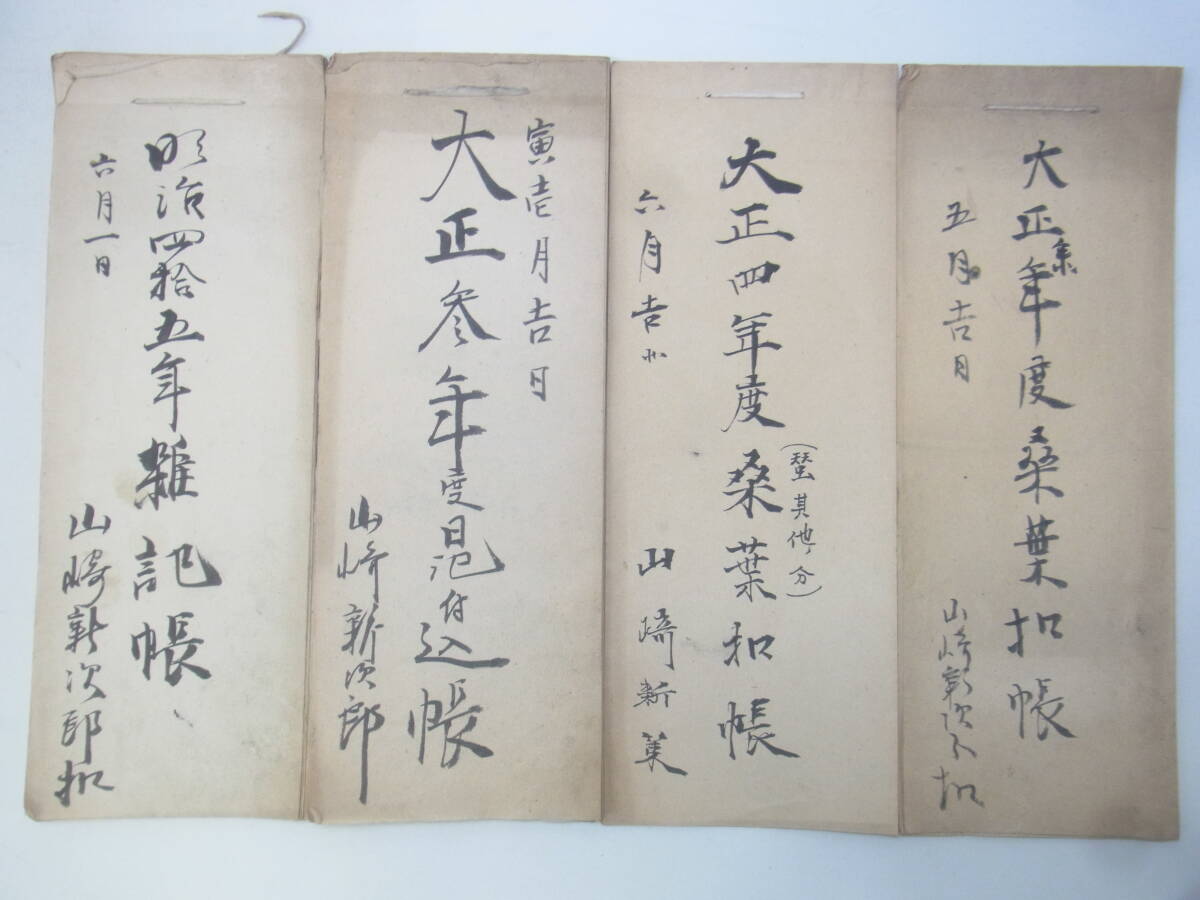 大正年度桑葉扣帳
五月吉日
山崎新次郎扣
(蚕其他分)
大正四年度桑葉扣帳
六月吉日
山崎新
寅壱月吉日
大正参年度日記付込帳
山崎新次郎
明治四拾五年雑記帳
六月一日
山崎新次郎扣